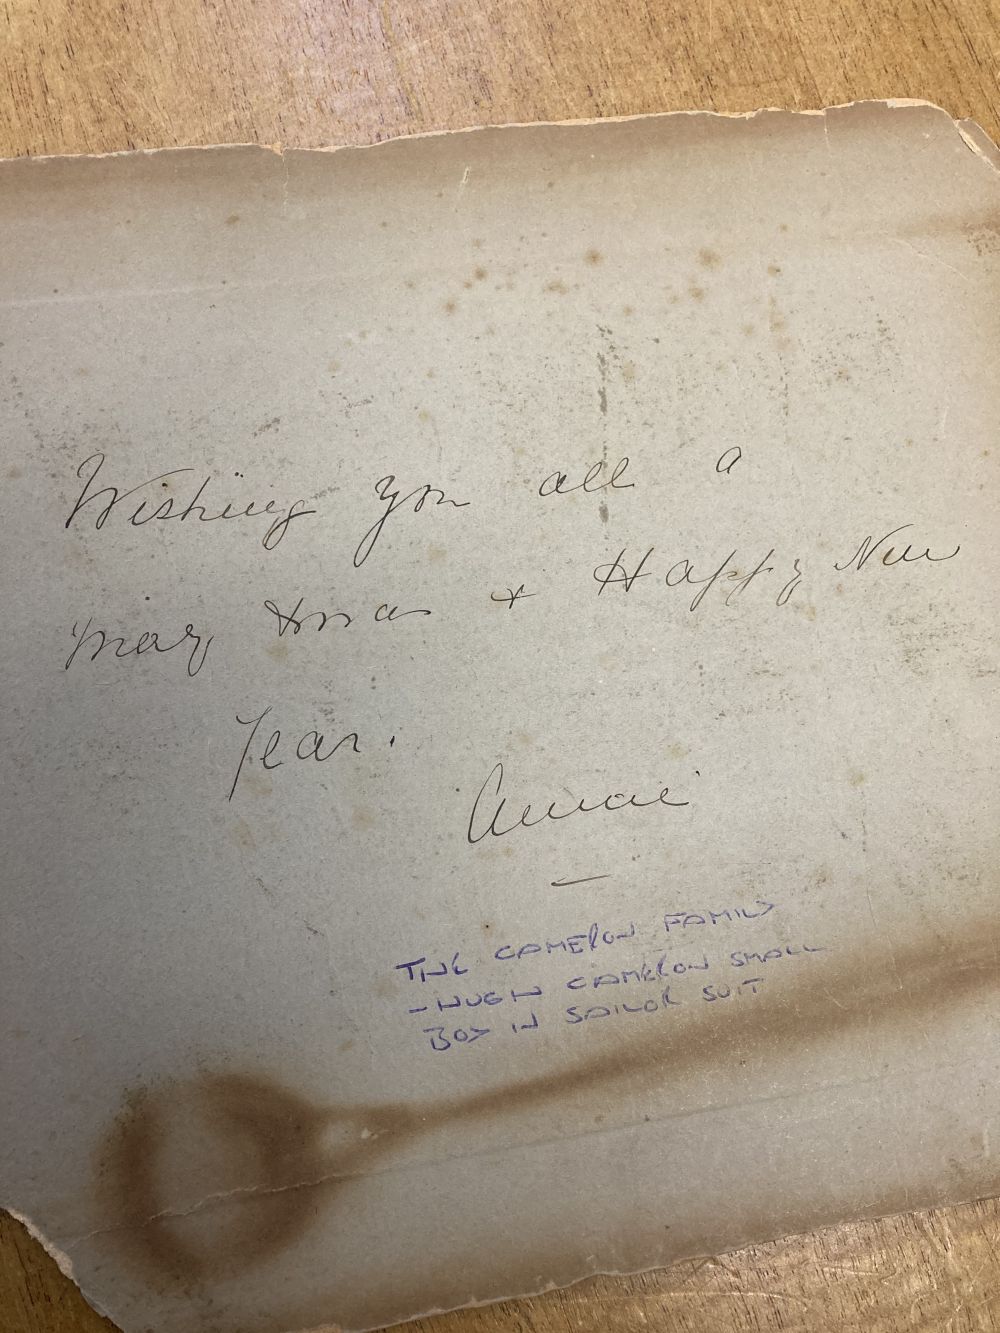 Wishing you all a
Merry Xmas + Happy New
Year.
Annie
THE CAMERON FAMILY
- HUGH CAMERON SMALL
BOY IN SAILOR SUIT